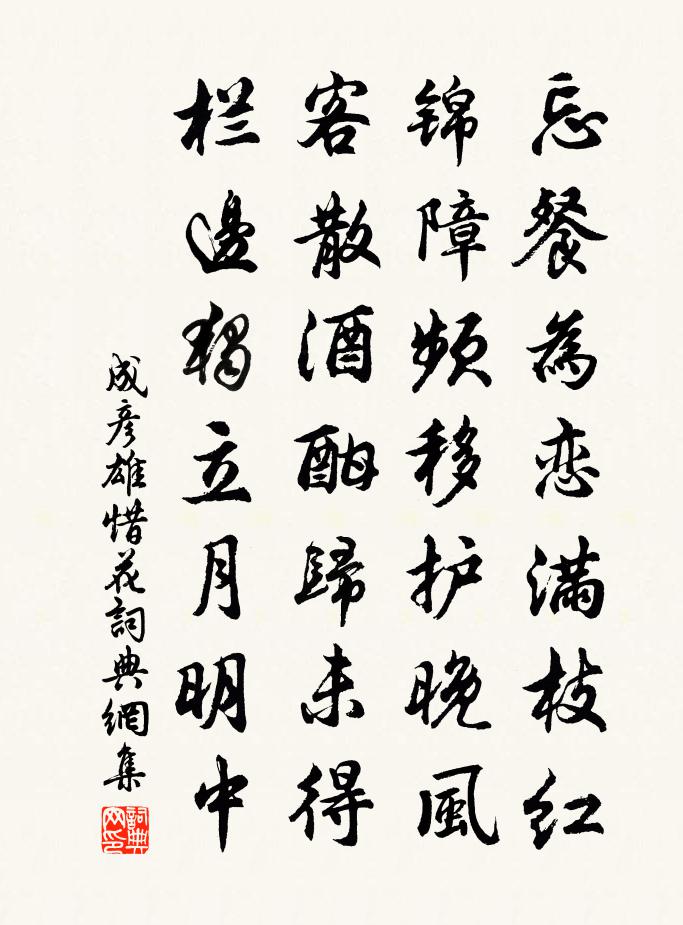 忘餐為恋满枝红
锦障频移护晚風
客散酒酣歸未得
栏邊獨立月明中
成彦雄惜花詞典網集
詞典网印